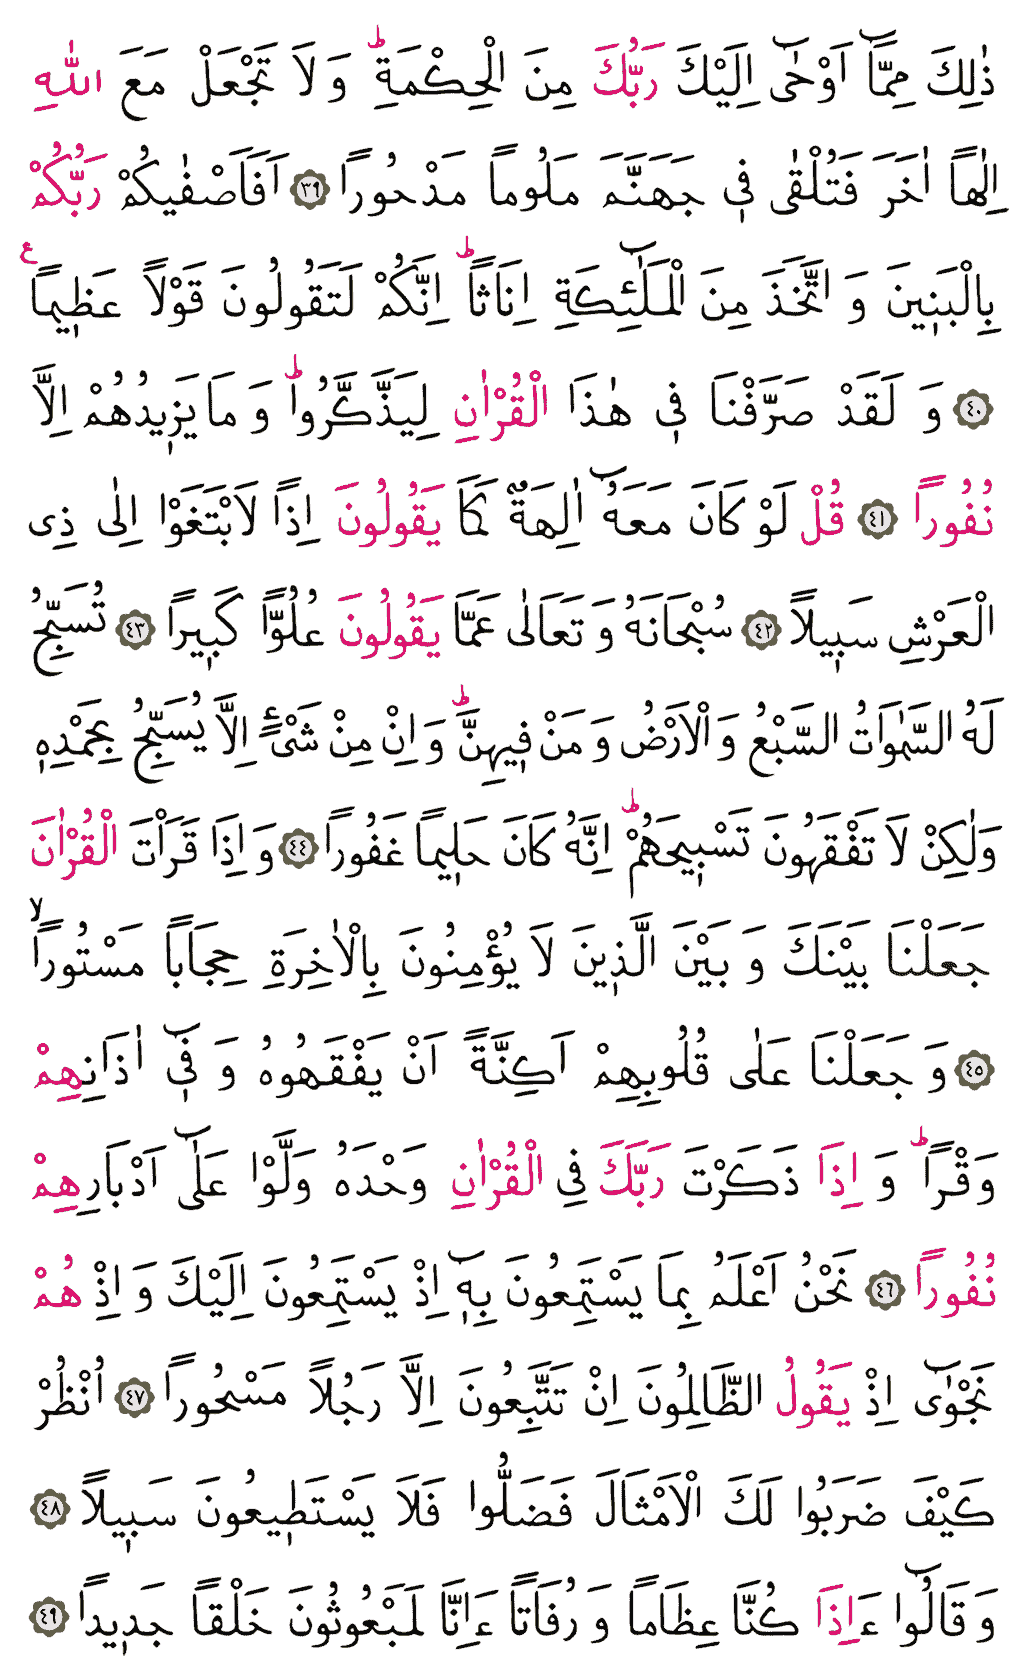 ذٰلِكَ مِمَّٓا اَوْحٰٓى اِلَيْكَ رَبُّكَ مِنَ الْحِكْمَةِۜ وَ لَا تَجْعَلْ مَعَ اللّٰهِ
اِلٰهاً اٰخَرَ فَتُلْقٰى ف۪ي جَهَنَّمَ مَلُوماً مَدْحُوراً ﴿٣٩﴾ اَفَاَصْفٰيكُمْ رَبُّكُمْ
بِالْبَن۪ينَ وَ اتَّخَذَ مِنَ الْمَلٰٓئِكَةِ اِنَاثاًۜ اِنَّكُمْ لَتَقُولُونَ قَوْلاً عَظ۪يماًࣖ
﴿٤٠﴾ وَ لَقَدْ صَرَّفْنَا ف۪ي هٰذَا الْقُرْاٰنِ لِيَذَّكَّرُواۜ وَ مَا يَز۪يدُهُمْ اِلَّا
نُفُوراً ﴿٤١﴾ قُلْ لَوْ كَانَ مَعَهُٓ اٰلِهَةٌ كَمَا يَقُولُونَ اِذاً لَابْتَغَوْا اِلٰى ذِى
الْعَرْشِ سَب۪يلاً ﴿٤٢﴾ سُبْحَانَهُ وَ تَعَالٰى عَمَّا يَقُولُونَ عُلُوًّا كَب۪يراً ﴿٤٣﴾ تُسَبِّحُ
لَهُ السَّمٰوَاتُ السَّبْعُ وَ الْاَرْضُ وَ مَنْ ف۪يهِنَّۜ وَ اِنْ مِنْ شَىْءٍ اِلَّا يُسَبِّحُ بِحَمْدِه۪
وَلٰكِنْ لَا تَفْقَهُونَ تَسْب۪يحَهُمْۜ اِنَّهُ كَانَ حَل۪يماً غَفُوراً ﴿٤٤﴾ وَ اِذَا قَرَاْتَ الْقُرْاٰنَ
جَعَلْنَا بَيْنَكَ وَ بَيْنَ الَّذ۪ينَ لَا يُؤْمِنُونَ بِالْاٰخِرَةِ حِجَاباً مَسْتُوراًۙ
﴿٤٥﴾ وَ جَعَلْنَا عَلٰى قُلُوبِهِمْ اَكِنَّةً اَنْ يَفْقَهُوهُ وَ ف۪ٓي اٰذَانِهِمْ
وَقْراًۜ وَ اِذَا ذَكَرْتَ رَبَّكَ فِي الْقُرْاٰنِ وَحْدَهُ وَلَّوْا عَلٰٓى اَدْبَارِهِمْ
نُفُوراً ﴿٤٦﴾ نَحْنُ اَعْلَمُ بِمَا يَسْتَمِعُونَ بِه۪ٓ اِذْ يَسْتَمِعُونَ اِلَيْكَ وَ اِذْ هُمْ
نَجْوٰٓى اِذْ يَقُولُ الظَّالِمُونَ اِنْ تَتَّبِعُونَ اِلَّا رَجُلاً مَسْحُوراً ﴿٤٧﴾ اُنْظُرْ
كَيْفَ ضَرَبُوا لَكَ الْاَمْثَالَ فَضَلُّوا فَلَا يَسْتَط۪يعُونَ سَب۪يلاً ﴿٤٨﴾
وَ قَالُٓوا ءَاِذَا كُنَّا عِظَاماً وَ رُفَاتاً ءَاِنَّا لَمَبْعُوثُونَ خَلْقاً جَد۪يداً ﴿٤٩﴾